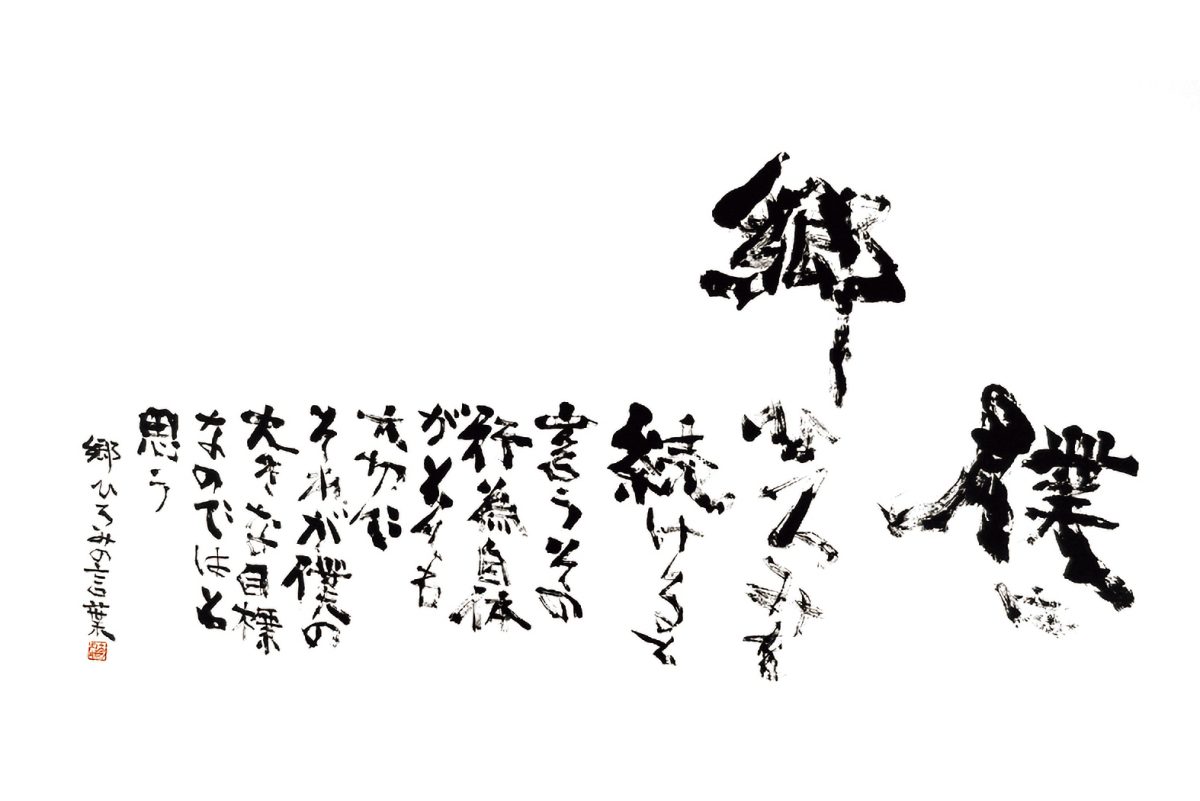 僕は
郷ひろみを
続けると
言うその
行為自体
がとても
大切だ
それが僕の
大きな目標
なのではと
思う
郷ひろみの言葉